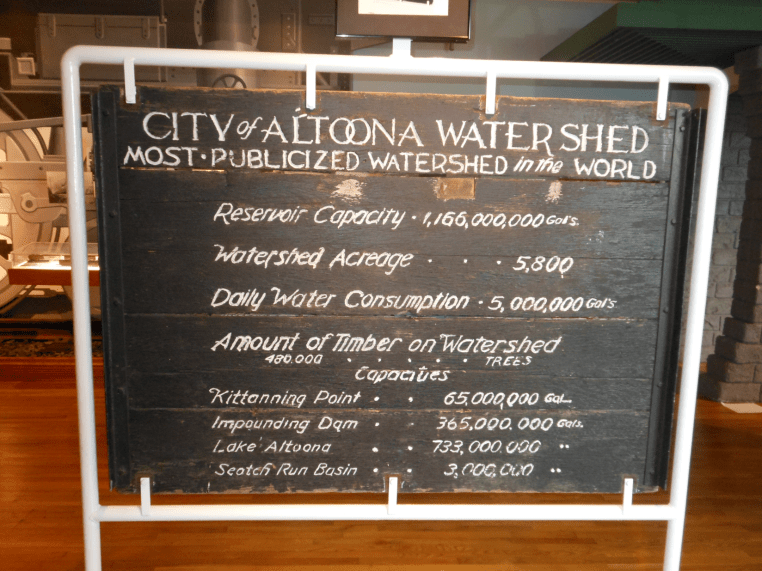 CITY of ALTOONA WATER SHED
MOST·PUBLICIZED WATERSHED in the WORLD
Reservoir Capacity · 1,166,000,000 Gal's.
Watershed Acreage · · · 5,800
Daily Water Consumption · 5,000,000 Gal's
Amount of Timber on Watershed
480.000 · · · · · TREES
Capacities
Kittanning Point · · 65,000,000 Gal..
Impounding Dam · · 365,000,000 Gals.
Lake Altoona · · 733,000,000 "
Scotch Run Basin · · 3,000,000 "